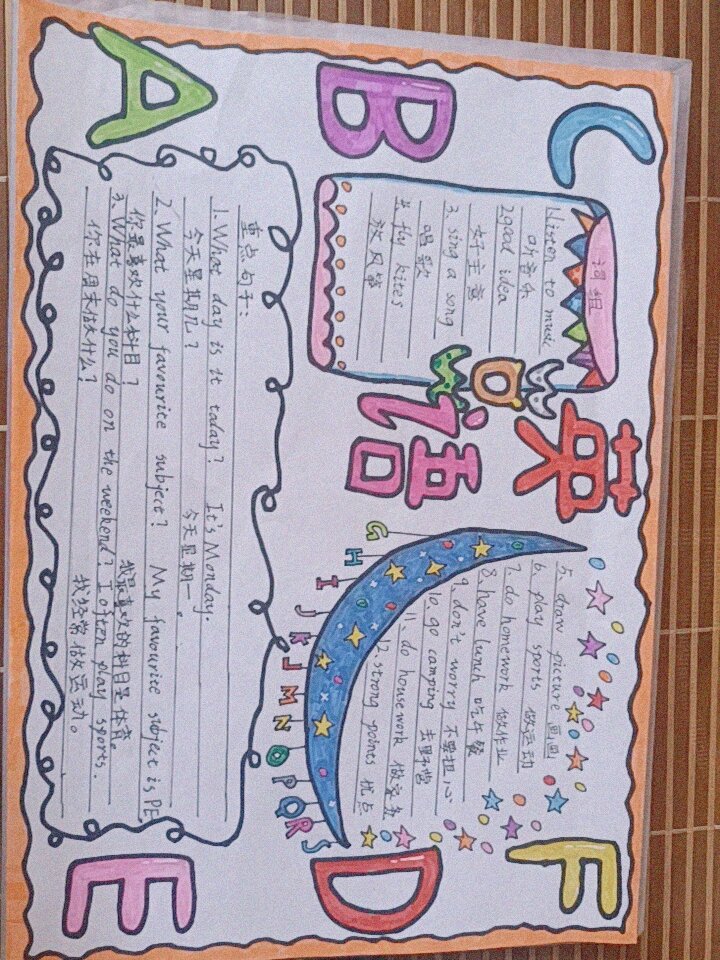 C
F
英语
词组
1.listen to music
听音乐
2good idea
好主意
3. sing a song
唱歌
4. fly kites
放风筝
5. draw picture 画画
6. play sports 做运动
7. do homework 做作业
8. have lunch 吃午餐
9. don't worry 不要担心
10. go camping 去野营
11. do housework 做家务
12 strong points 优点
G H I J K J M N O P Q R S
B
D
A
E
重点句子：
1. What day is it today? It's Monday.
今天星期几？ 今天星期一。
2. What your favourite subject? My favourite subject is PE
你最喜欢什么科目？ 我最喜欢的科目是体育。
3. What do you do on the weekend? I often play sports.
你在周末做什么？ 我经常做运动。